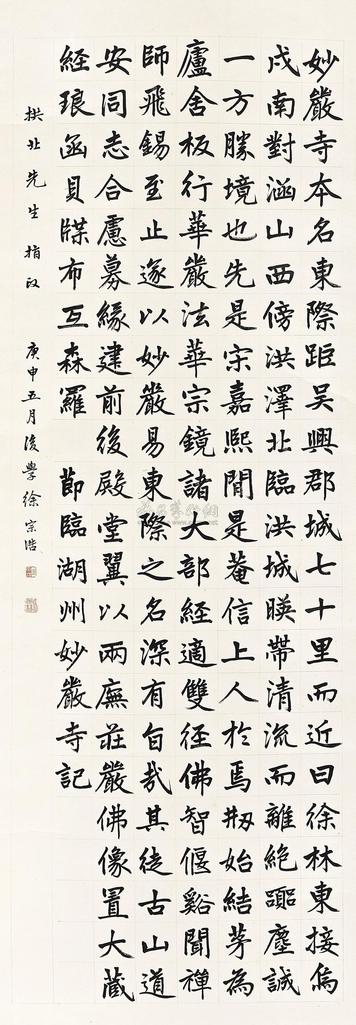 妙嚴寺本名東際距吳興郡城七十里而近曰徐林東接烏
戍南對涵山西傍洪澤北臨洪城暎帶清流而離絶囂塵誠
一方勝境也先是宋嘉熙間是菴信上人於焉刱始結茅為
廬舍板行華嚴法華宗鏡諸大部經適雙徑佛智偃谿聞禪
師飛錫至止遂以妙嚴易東際之名深有旨哉其徒古山道
安同志合慮募緣建前後殿堂翼以兩廡莊嚴佛像置大藏
經琅函貝牒布互森羅 節臨湖州妙嚴寺記
拱北先生指政 庚申五月後學徐宗浩